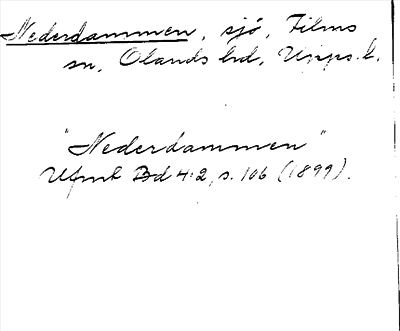 Nederdammen, sjö, Films
sn, Olands hd, Upps. l.
"Nederdammen"
Ufmt Bd 4:2, s. 106 (1899).